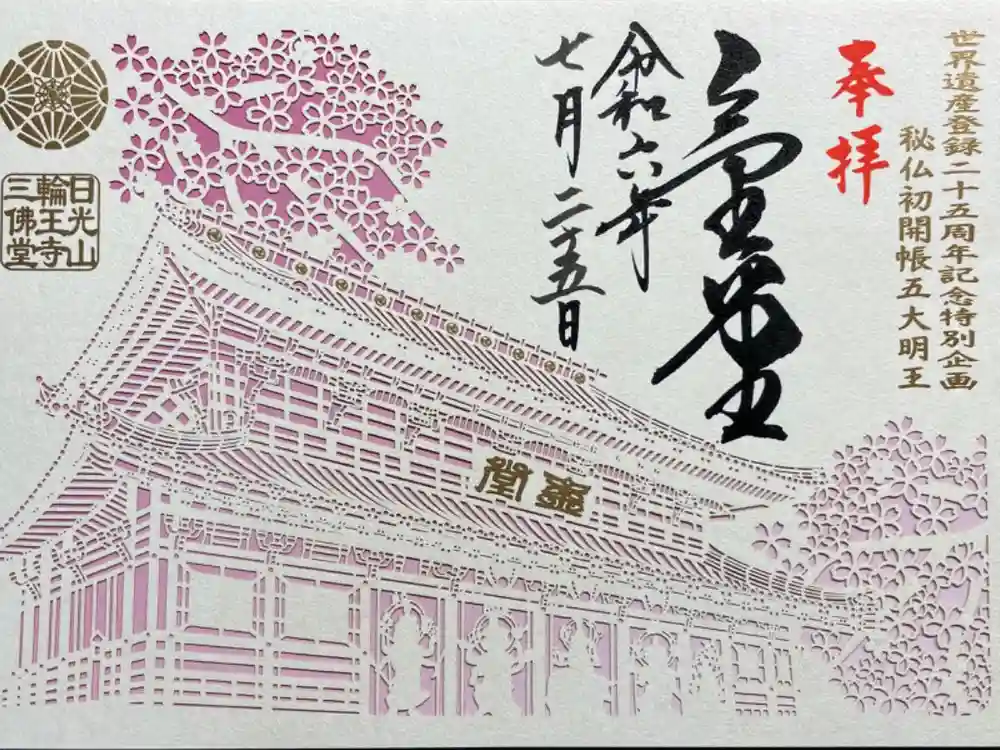 世界遺産登録二十五周年記念特別企画
秘仏初開帳五大明王
奉拝
金堂
令和六年
七月二十五日
日光山
輪王寺
三佛堂
金堂